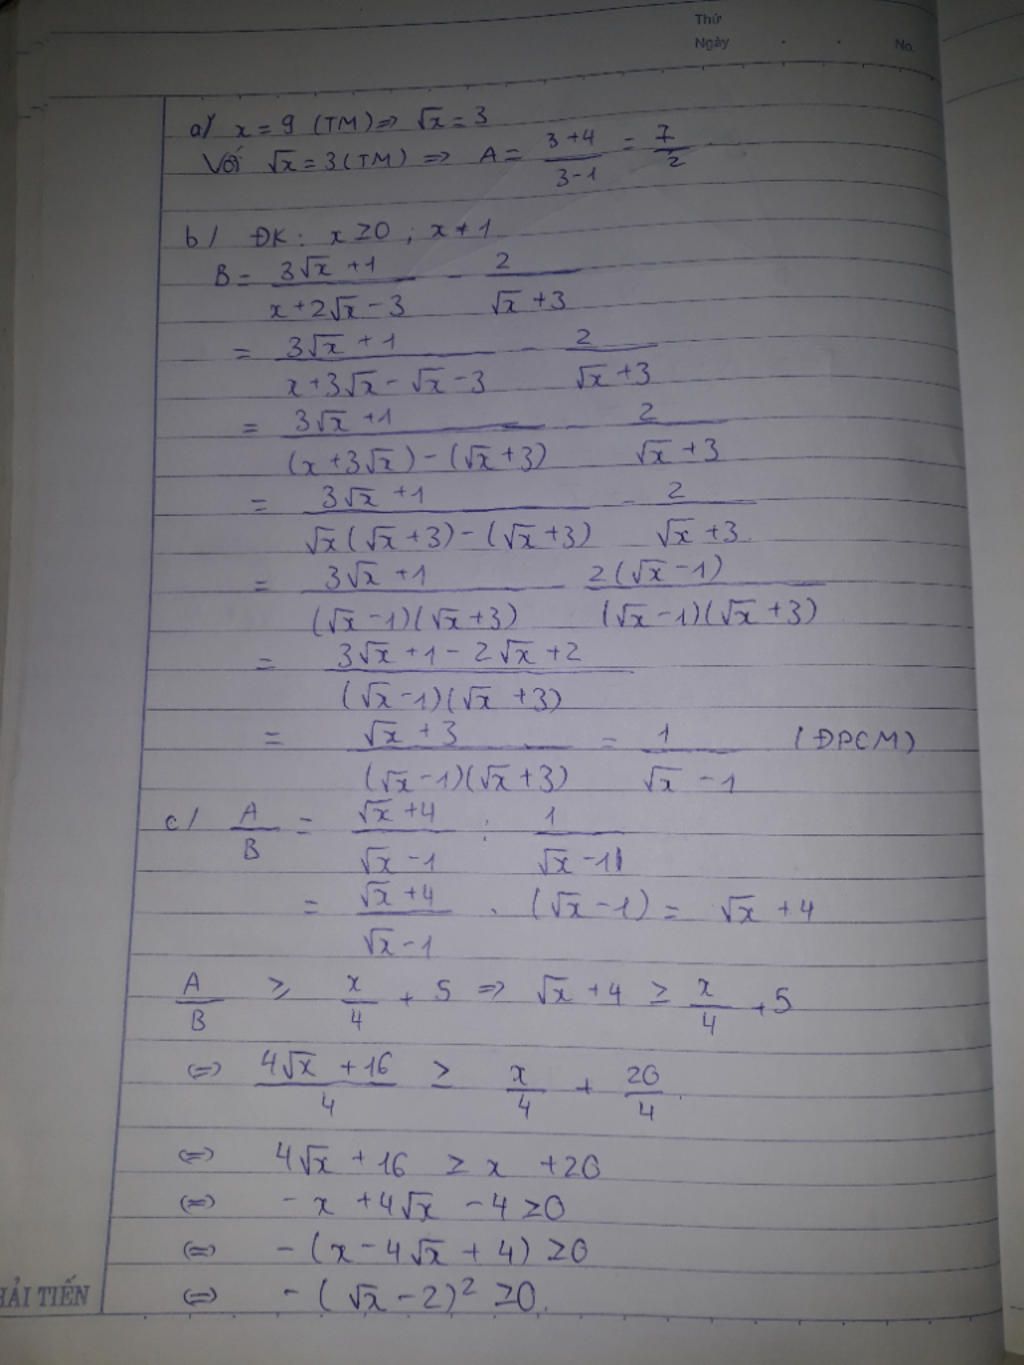 Thứ
Ngày . . No.
a/ x = 9 (TM) => √x = 3
Với √x = 3 (TM) => A = (3+4)/(3-1) = 7/2
b/ ĐK: x ≥ 0 ; x ≠ 1
B = (3√x + 1)/(x + 2√x - 3) - 2/(√x + 3)
= (3√x + 1)/(x + 3√x - √x - 3) - 2/(√x + 3)
= (3√x + 1)/((x + 3√x) - (√x + 3)) - 2/(√x + 3)
= (3√x + 1)/(√x(√x + 3) - (√x + 3)) - 2/(√x + 3)
= (3√x + 1)/((√x - 1)(√x + 3)) - 2(√x - 1)/((√x - 1)(√x + 3))
= (3√x + 1 - 2√x + 2)/((√x - 1)(√x + 3))
= (√x + 3)/((√x - 1)(√x + 3)) = 1/(√x - 1) (ĐPCM)
c/ A/B = (√x + 4)/(√x - 1) : 1/(√x - 1)
= (√x + 4)/(√x - 1) . (√x - 1) = √x + 4
A/B ≥ x/4 + 5 => √x + 4 ≥ x/4 + 5
<=> (4√x + 16)/4 ≥ x/4 + 20/4
<=> 4√x + 16 ≥ x + 20
<=> - x + 4√x - 4 ≥ 0
<=> - (x - 4√x + 4) ≥ 0
<=> - (√x - 2)² ≥ 0.
HẢI TIẾN